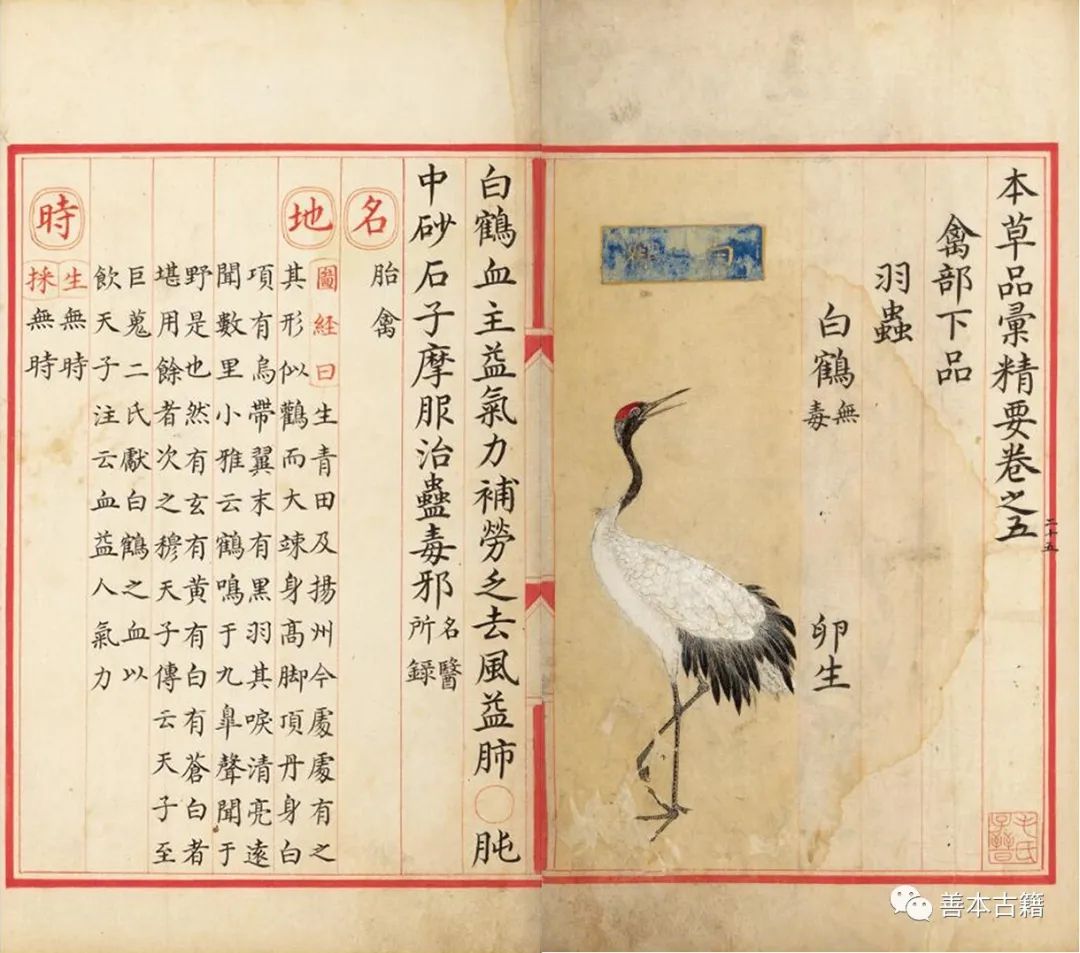 本草品彙精要卷之五
二十五
禽部下品
羽蟲
白鶴無毒 卵生
白
毛氏子晉
白鶴血主益氣力補勞乏去風益肺〇肫
中砂石子摩服治蠱毒邪名醫所錄
名 胎禽
地 圖經曰生青田及揚州今處處有之
其形似鸛而大竦身高脚頂丹身白
項有烏帶翼末有黑羽其唳清亮遠
聞數里小雅云鶴鳴于九皐聲聞于
野是也然有玄有黄有白有蒼白者
堪用餘者次之穆天子傳云天子至
巨蒐二氏獻白鶴之血以
飲天子注云血益人氣力
時 生無時
採無時
善本古籍